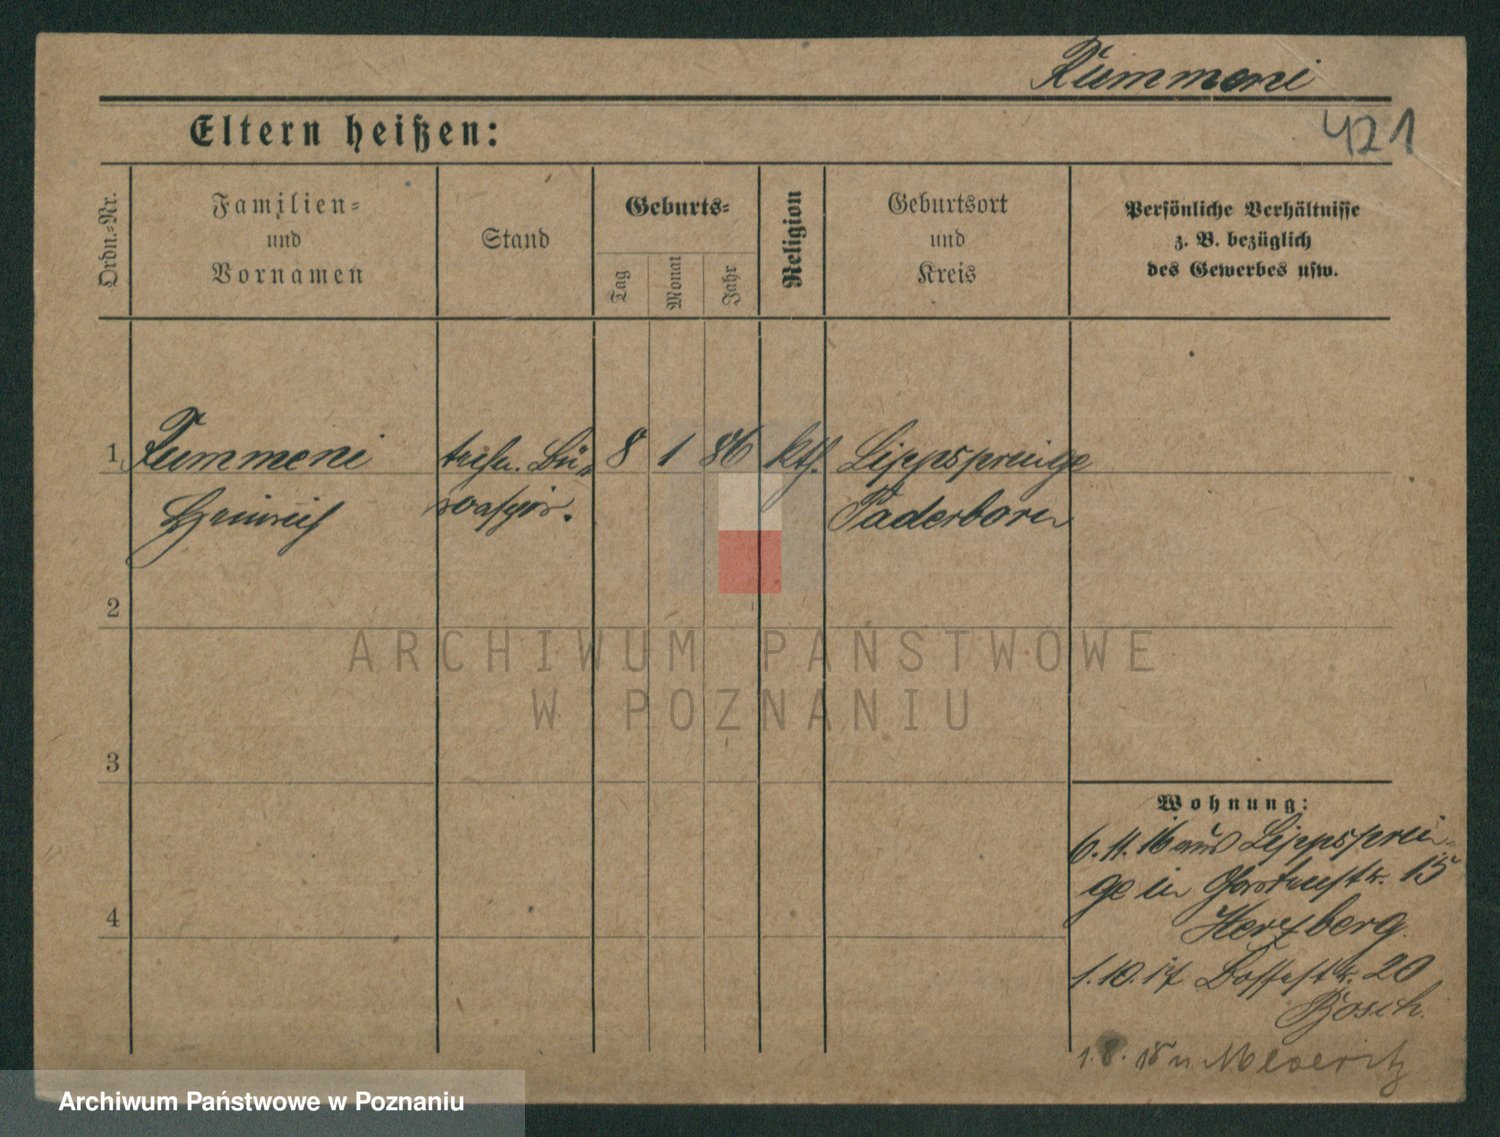 Rümmeni
421
Eltern heißen:
Ordn.-Nr.
Familien-
und
Vornamen
Stand
Geburts-
Tag
Monat
Jahr
Religion
Geburtsort
und
Kreis
Persönliche Verhältnisse
z. B. bezüglich
des Gewerbes usw.
1
Rümmeni
8
1
86
kth.
Lippspringe
Heinrich
Paderborn
2
ARCHIWUM PAŃSTWOWE
W POZNANIU
3
Wohnung:
6.11.16 aus Lippsprin-
ge in 15
Herzberg
4
1.10.17 20
Bosch.
1.8.18 n Meseritz
Archiwum Państwowe w Poznaniu